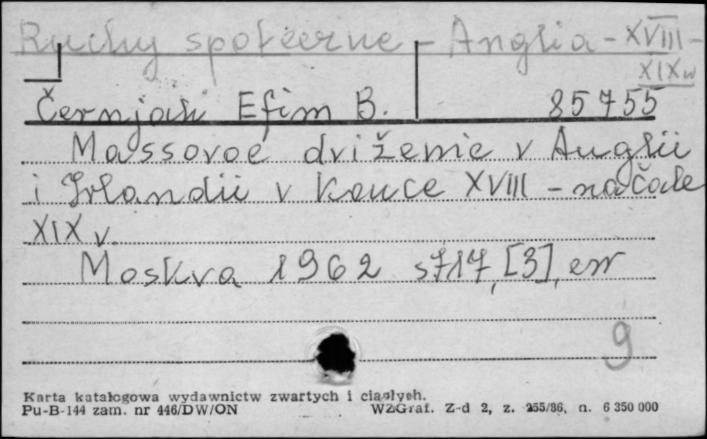 Ruchy społeczne - Anglia - XVIII -
XIX w
Černjak Efim B. 85755
Massovoe dviženie v Anglii
i Irlandii v konce XVIII - načale
XIX v.
Moskva 1962 s717, [3], err
9
Karta katalogowa wydawnictw zwartych i ciągłych.
Pu-B-144 zam. nr 446/DW/ON WZGraf. Z-d 2, z. 255/86, n. 6 350 000